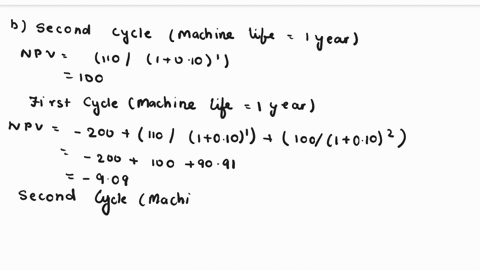 b) Second cycle (Machine life = 1 year)
NPV = (110 / (1+0.10)¹)
= 100
First cycle (Machine life = 1 year)
NPV = -200 + (110 / (1+0.10)¹) + (100/(1+0.10)²)
= -200 + 100 + 90.91
= -9.09
Second Cycle (Machi